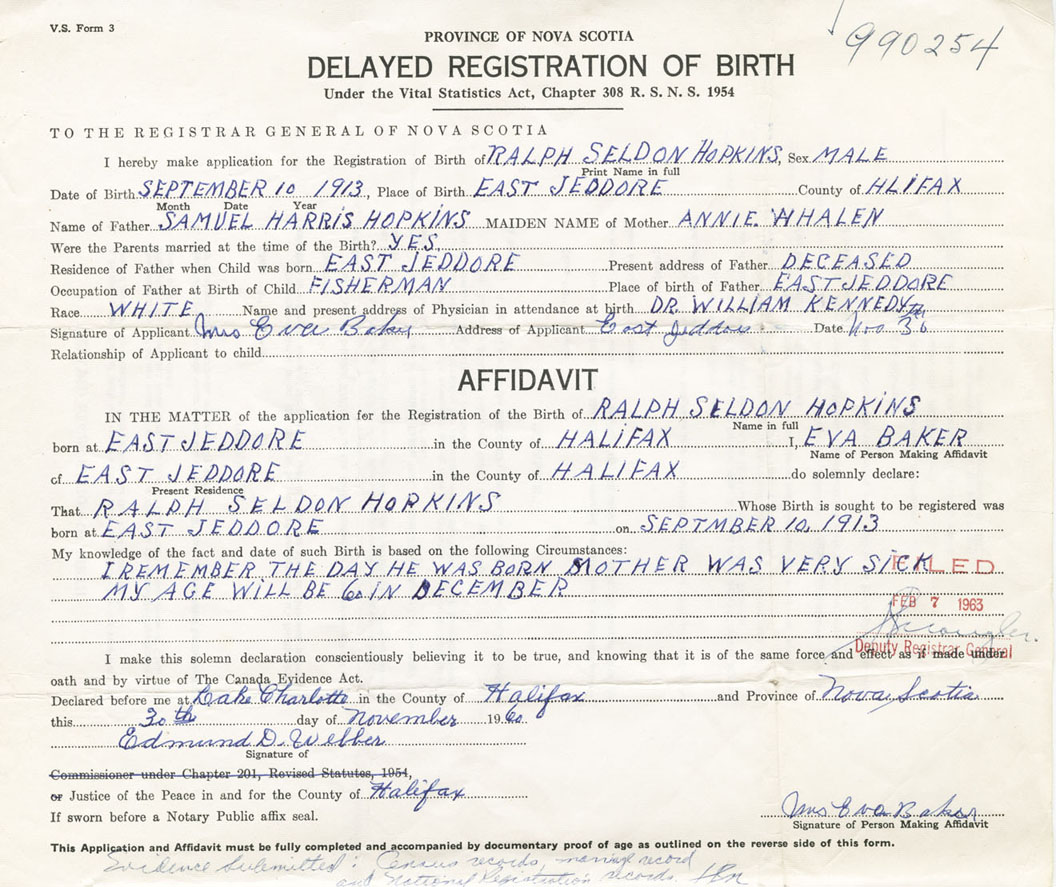 V.S. Form 3
990254
PROVINCE OF NOVA SCOTIA
DELAYED REGISTRATION OF BIRTH
Under the Vital Statistics Act, Chapter 308 R. S. N. S. 1954
TO THE REGISTRAR GENERAL OF NOVA SCOTIA
I hereby make application for the Registration of Birth of RALPH SELDON HOPKINS, Sex MALE
Print Name in full
Date of Birth SEPTEMBER 10 1913, Place of Birth EAST JEDDORE County of HLIFAX
Month Date Year
Name of Father SAMUEL HARRIS HOPKINS MAIDEN NAME of Mother ANNIE WHALEN
Were the Parents married at the time of the Birth? YES
Residence of Father when Child was born EAST JEDDORE Present address of Father DECEASED
Occupation of Father at Birth of Child FISHERMAN Place of birth of Father EAST JEDDORE
Race WHITE Name and present address of Physician in attendance at birth DR. WILLIAM KENNEDY
Signature of Applicant Mrs Eva Baker Address of Applicant East Jeddore Date Nov 30th
Relationship of Applicant to child
AFFIDAVIT
IN THE MATTER of the application for the Registration of the Birth of RALPH SELDON HOPKINS
Name in full
born at EAST JEDDORE in the County of HALIFAX I, EVA BAKER
Name of Person Making Affidavit
of EAST JEDDORE in the County of HALIFAX do solemnly declare:
Present Residence
That RALPH SELDON HOPKINS Whose Birth is sought to be registered was
born at EAST JEDDORE on SEPTMBER 10, 1913
My knowledge of the fact and date of such Birth is based on the following Circumstances:
I REMEMBER THE DAY HE WAS BORN MOTHER WAS VERY SICK
FILED
MY AGE WILL BE 60 IN DECEMBER
FEB 7 1963
Deputy Registrar General
I make this solemn declaration conscientiously believing it to be true, and knowing that it is of the same force and effect as if made under
oath and by virtue of The Canada Evidence Act.
Declared before me at Lake Charlotte in the County of Halifax and Province of Nova Scotia
this 30th day of November 1960
Edmund D. Webber
Signature of
Commissioner under Chapter 201, Revised Statutes, 1954,
or Justice of the Peace in and for the County of Halifax
If sworn before a Notary Public affix seal.
Mrs Eva Baker
Signature of Person Making Affidavit
This Application and Affidavit must be fully completed and accompanied by documentary proof of age as outlined on the reverse side of this form.
Evidence Submitted: Census records, marriage record
and National Registration records.